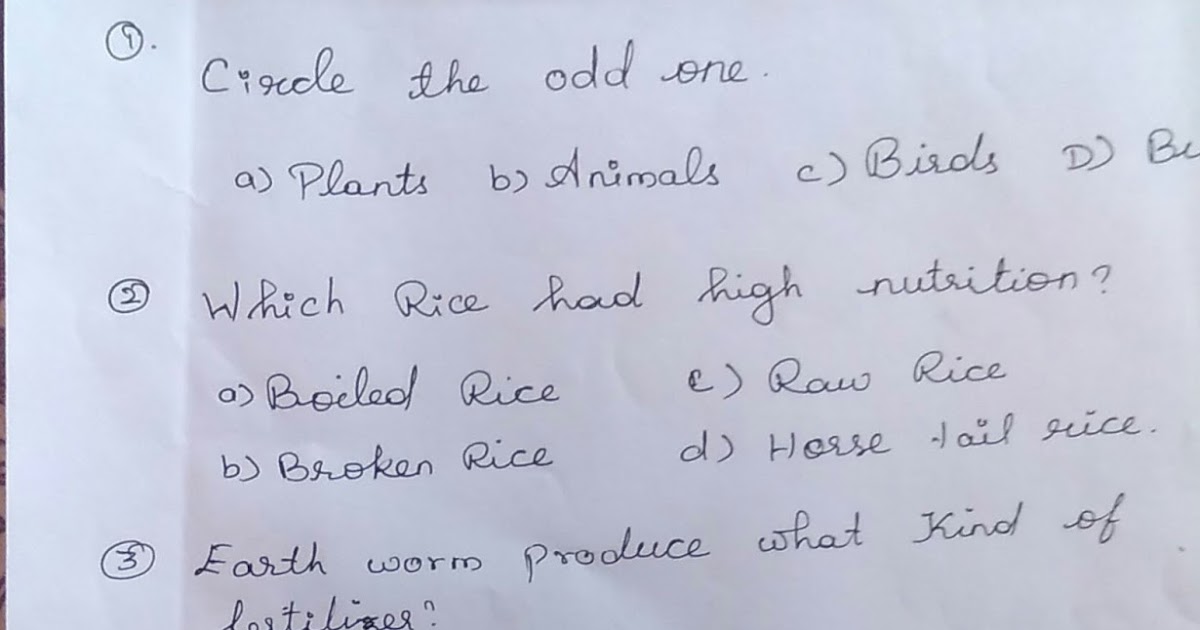 ①. Circle the odd one.
a) Plants b) Animals c) Birds D)
② Which Rice had high nutrition?
a) Boiled Rice c) Raw Rice
b) Broken Rice d) Horse tail rice.
③ Earth worm produce what kind of
fertilizer?